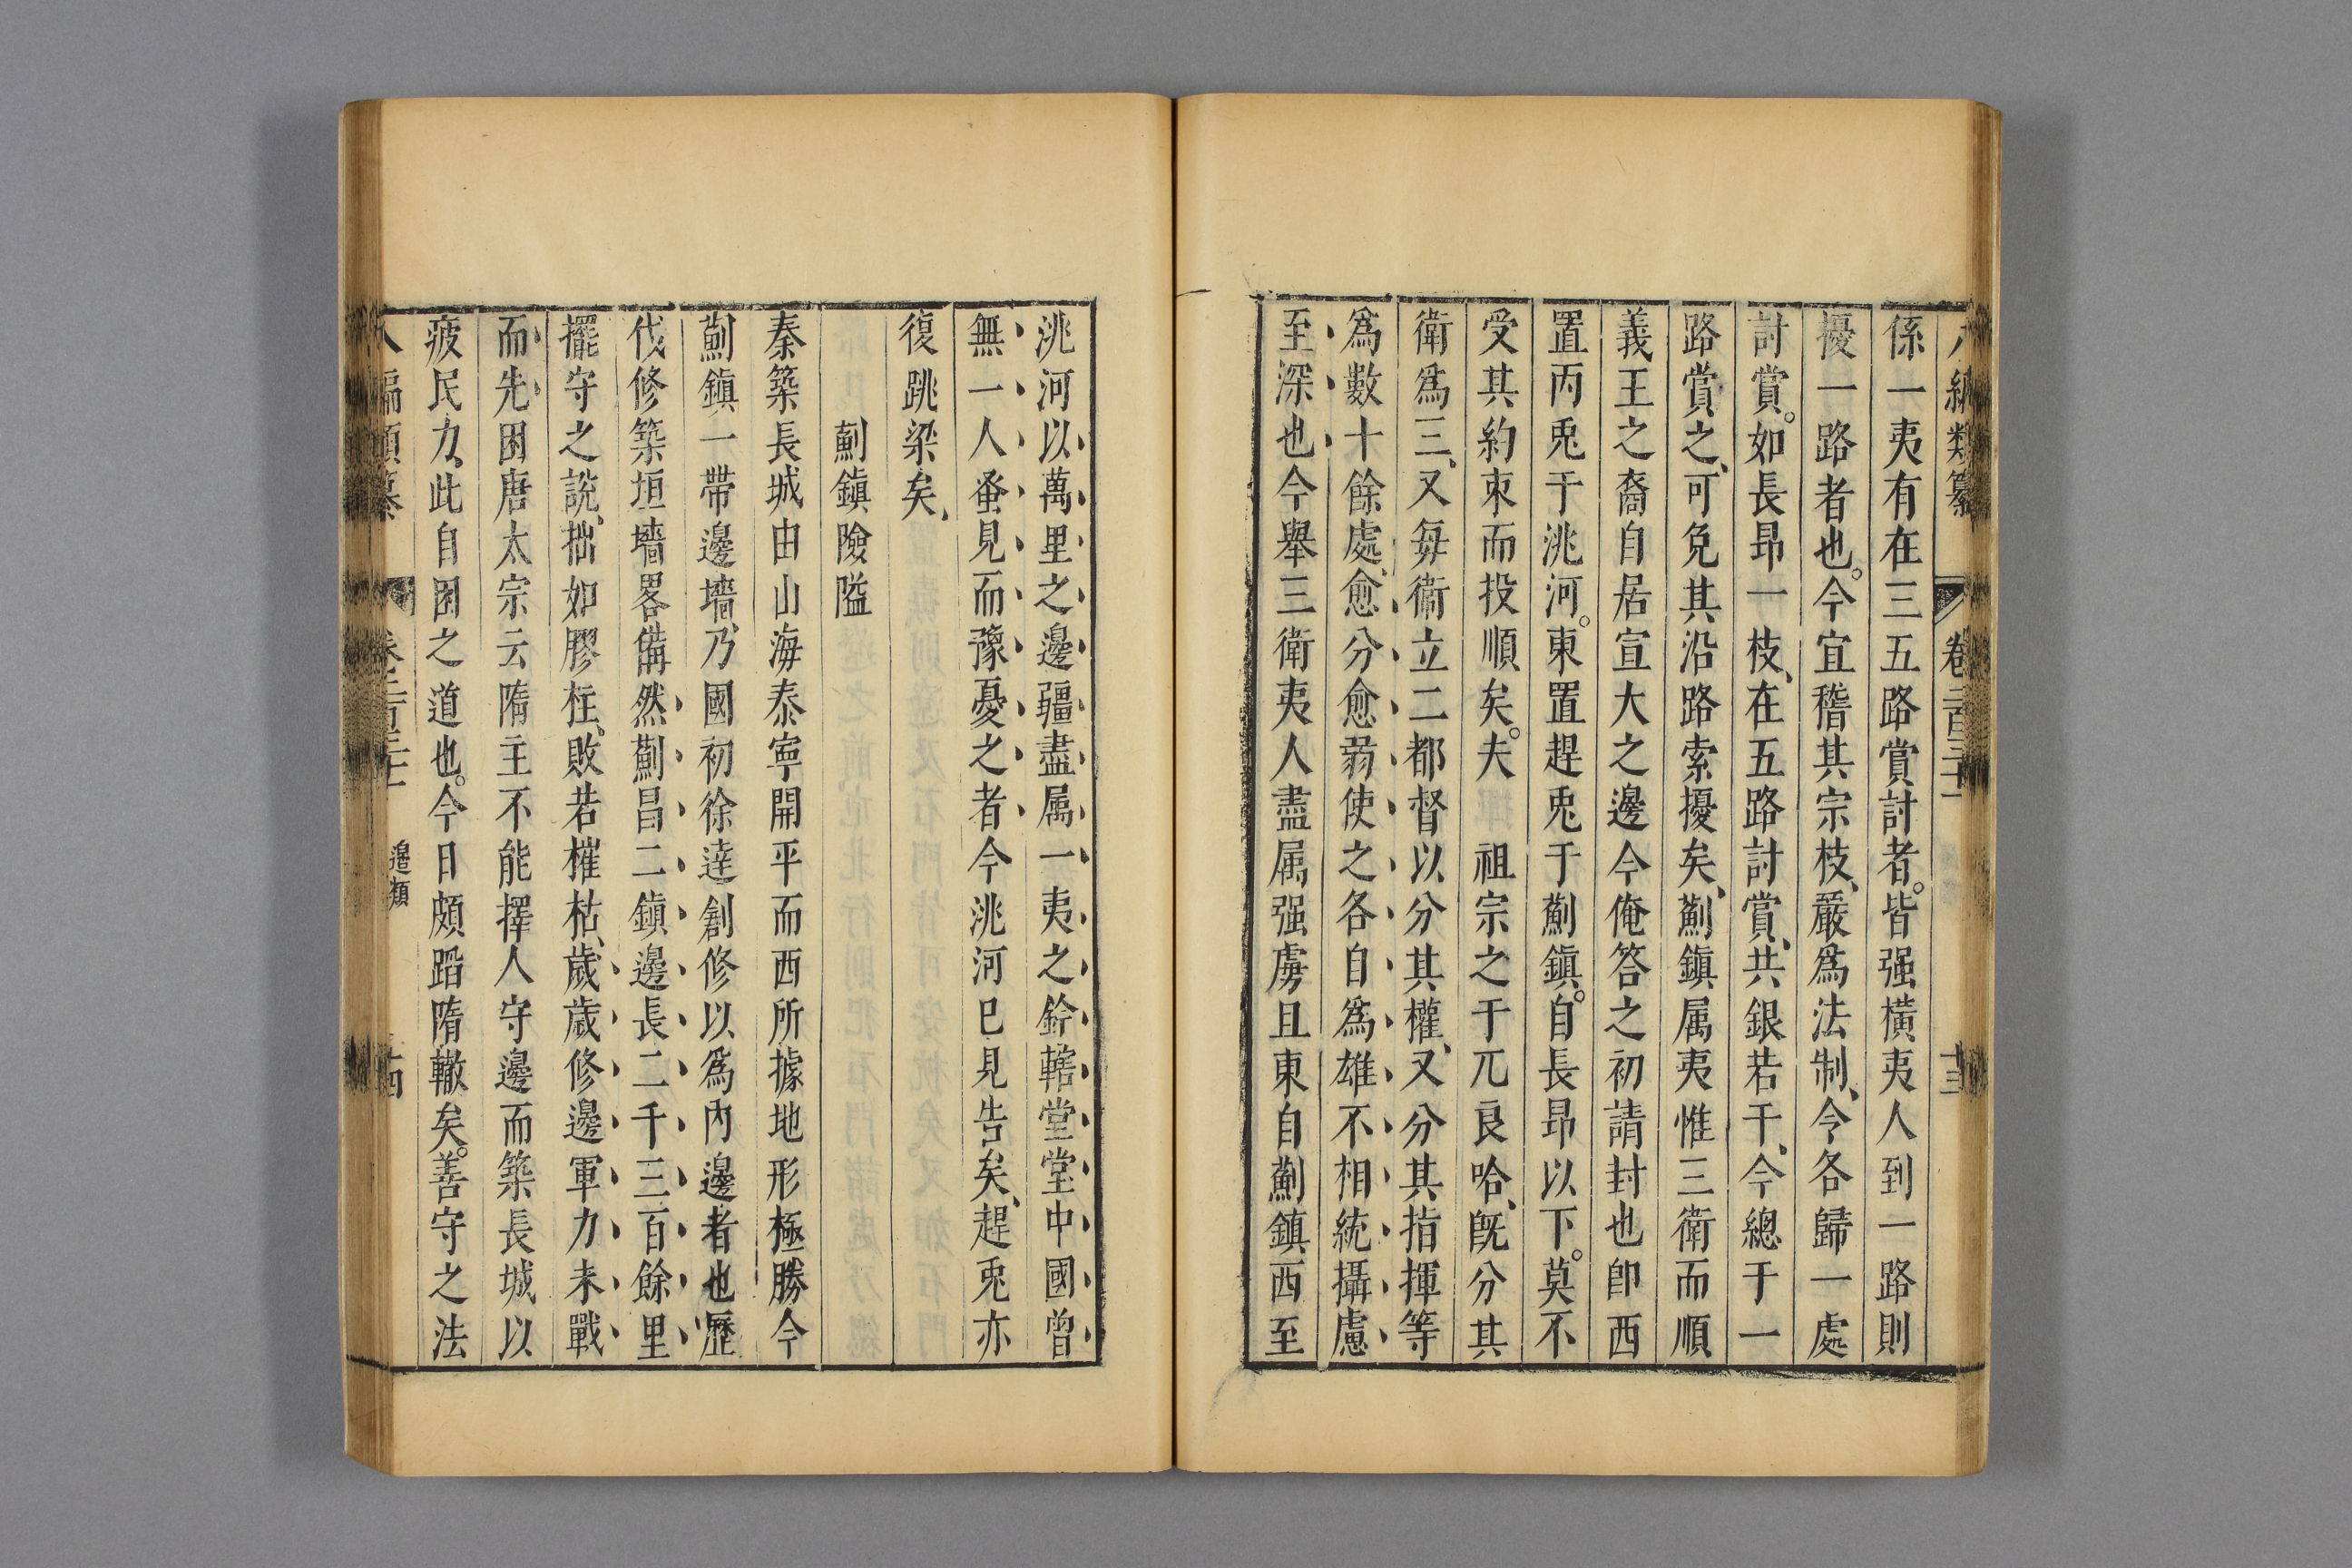 八編類纂 卷二百三十一 十三
係一夷有在三五路賞討者。皆强橫夷人到一路則
擾一路者也。今宜稽其宗枝、嚴爲法制、令各歸一處
討賞。如長昻一枝、在五路討賞、共銀若干、今總于一
路賞之、可免其沿路索擾矣、薊鎭属夷惟三衛而順
義王之裔自居宣大之邊今俺答之初請封也卽西
置丙兎于洮河。東置趕兎于薊鎭。自長昻以下。莫不
受其約束而投順矣。夫 祖宗之于兀良哈、旣分其
衛爲三、又每衛立二都督以分其權、又分其指揮等
爲數十餘處、愈分愈弱使之各自爲雄不相統攝慮
至深也今舉三衛夷人盡属强虜且東自薊鎭西至
洮河以萬里之邊疆盡属一夷之鈐轄堂堂中國曾
無一人蚤見而豫憂之者今洮河巳見告矣、趕兎亦
復跳梁矣、
薊鎭險隘
秦築長城由山海泰寧開平而西所據地形極勝今
薊鎭一帶邊墻、乃國初徐達創修以爲內邊者也歷
伐修築垣墻畧備然薊昌二鎭邊長二千三百餘里
擺守之說、拙如膠柱、敗若摧枯、歲歲修邊軍力未戰
而先困唐太宗云隋主不能擇人守邊而築長城以
疲民力、此自困之道也。今日頗蹈隋轍矣。善守之法
八編類纂 卷二百三十一 邊類 十四